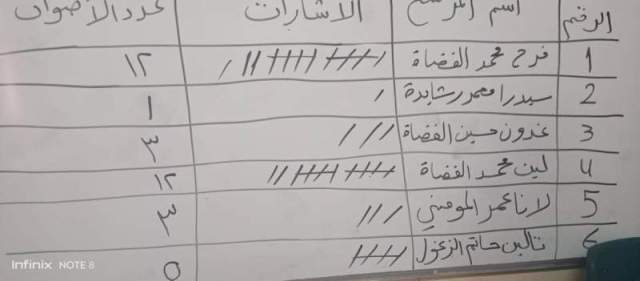 الرقم اسم المرشح الاشارات عدد الأصوات
1 فرح محمد القضاة ١٢
2 سيدرا معمر رشايدة ١
3 غدون حسين القضاة ٣
4 لين محمد القضاة ١٢
5 لانا عمر المومني ٣
6 تالين حاتم الزغول ٥
Infinix NOTE 8